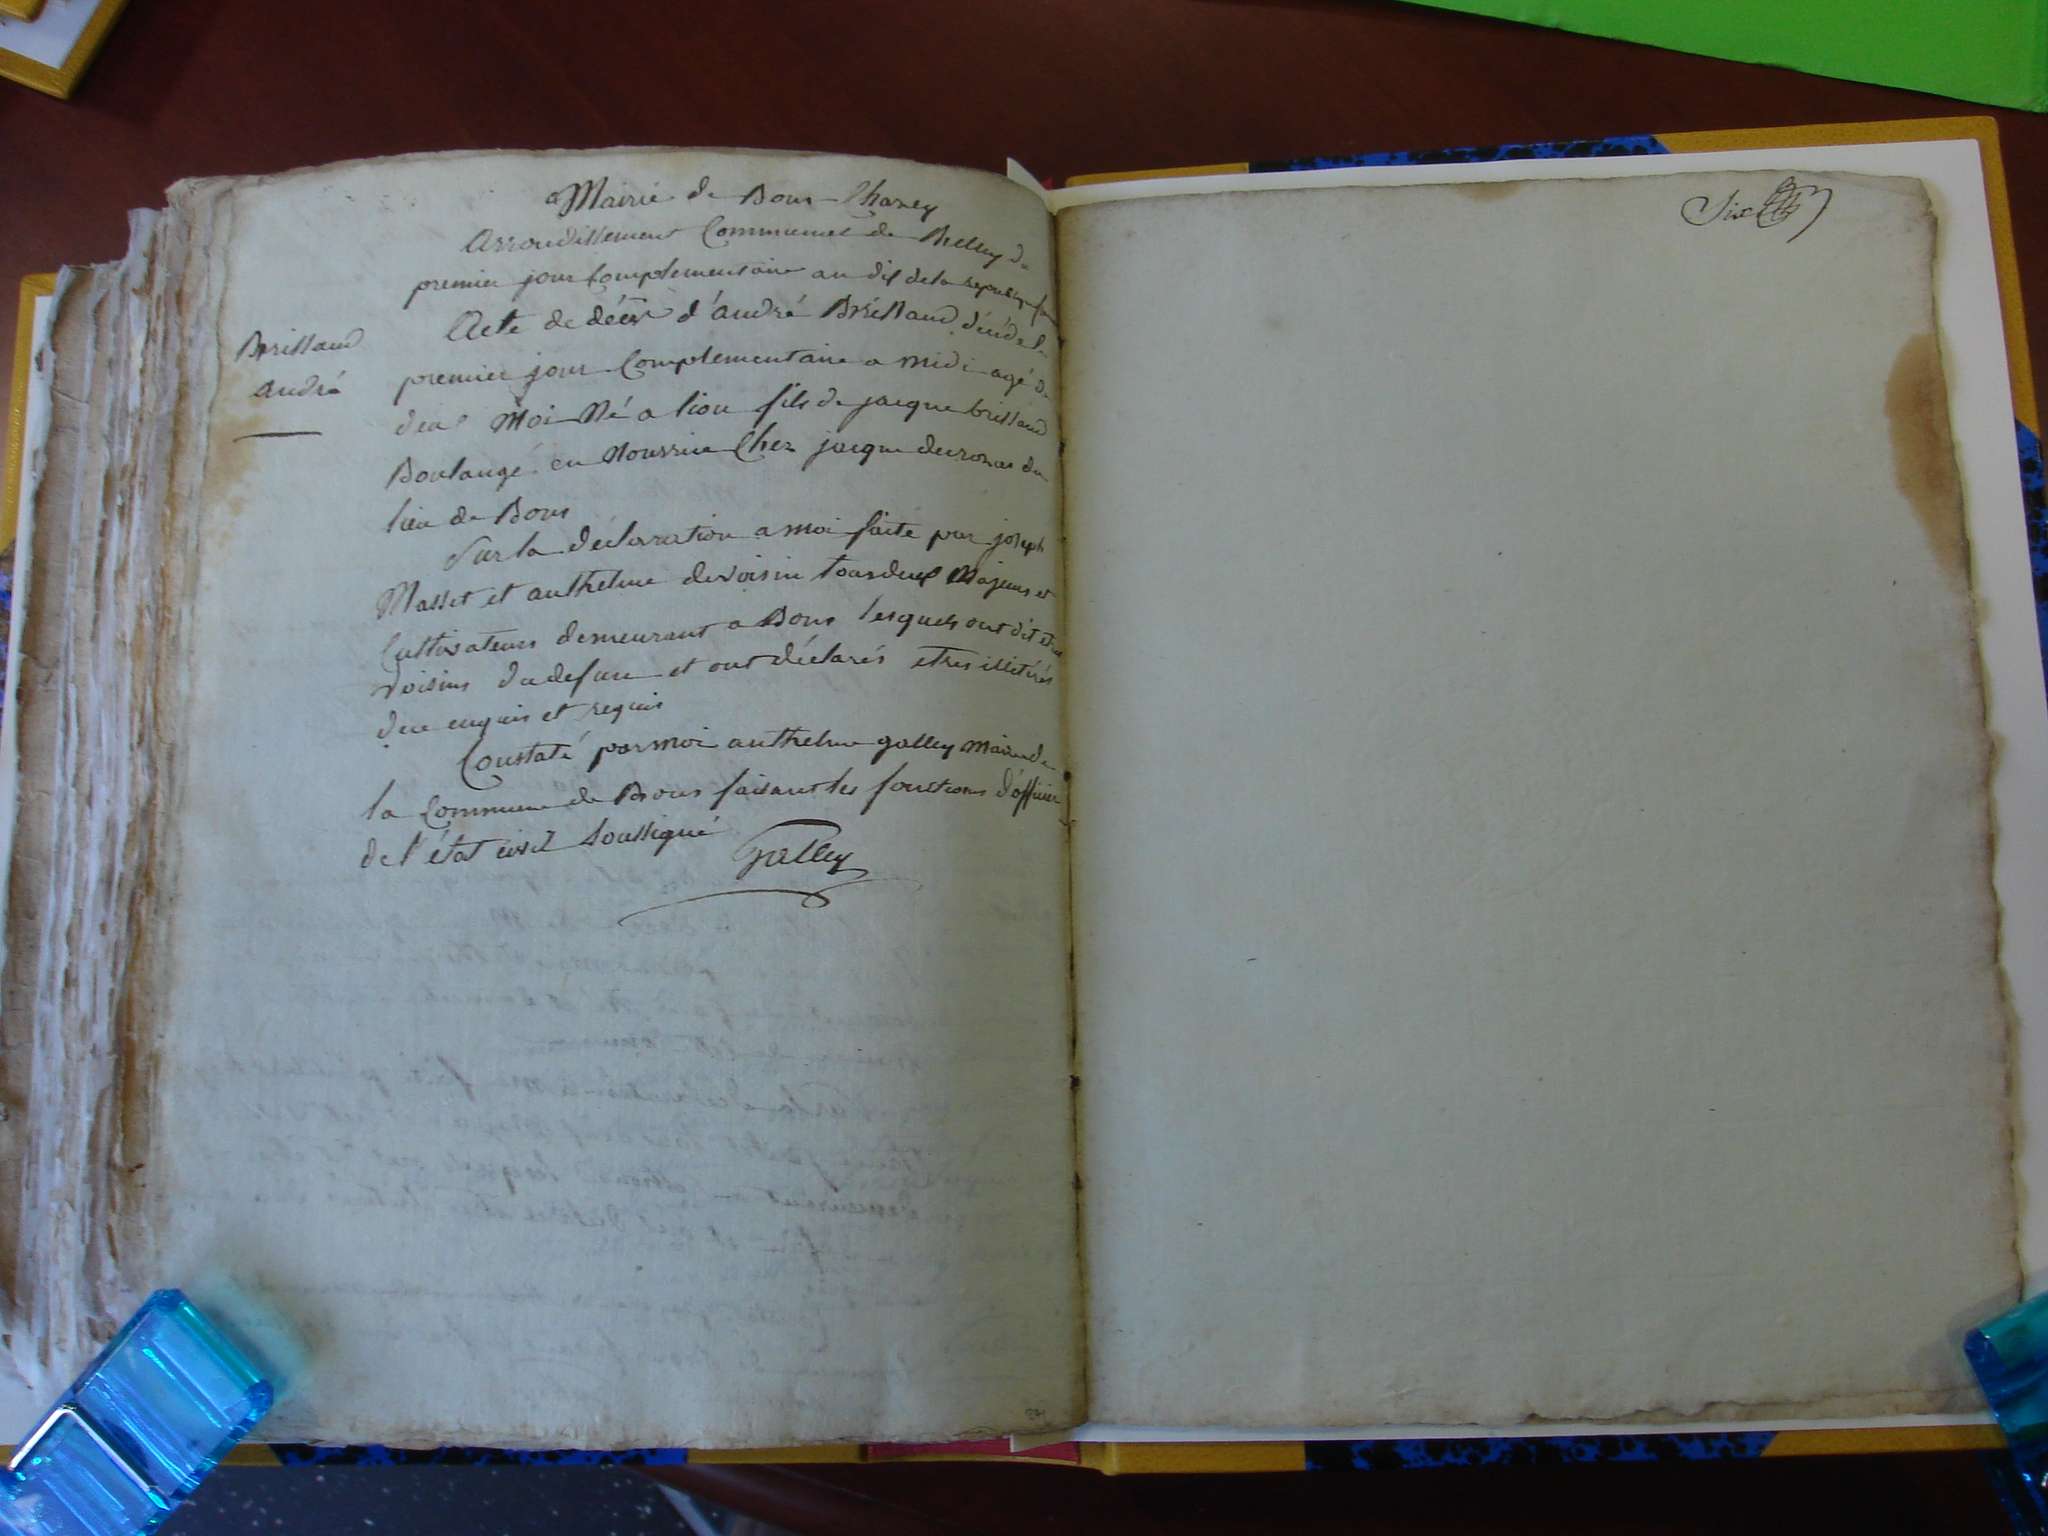 Mairie de Bons-Chaney
Arrondissement Communal de Belley du
premier jour Complementaire an dix de la republique
Acte de décés d'andré Brissaud décédé le
Brissaud
andré
premier jour Complementaire a midi agé de
deux Moi Né a lion fils de jacque brissaud
Boulangé en Nourrice Chez jacque du
lieu de Bons
Sur la déclaration a moi faite par joseph
Masset et anthelme devoisin tous deux Majeurs et
Cultivateurs demeurant a Bons lesquels ont dit etre
voisins du defunt et ont déclarés etres illitérés
de ce enquis et requis
Constaté par moi anthelme galley Maire de
la Commune de Bons faisant les fonctions d'officier
de l'état civil soussigné
Galley
Six